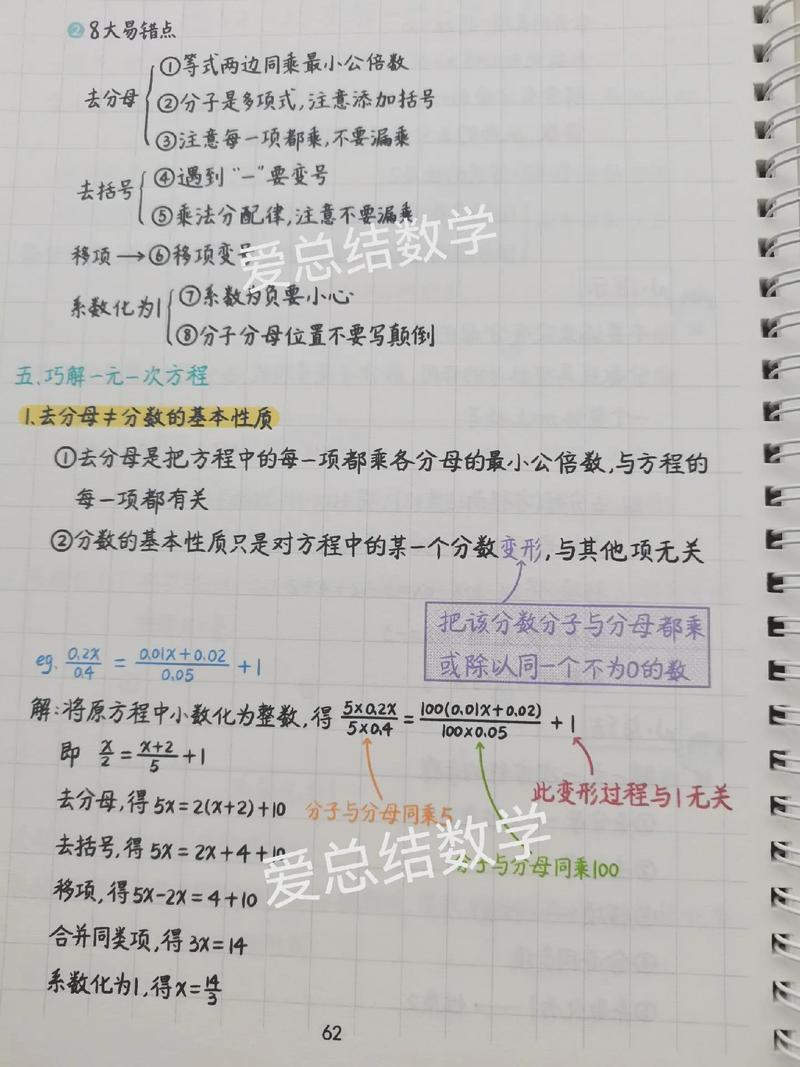 ❷ 8大易错点
去分母
①等式两边同乘最小公倍数
②分子是多项式,注意添加括号
③注意每一项都乘,不要漏乘
去括号
④遇到"—"要变号
⑤乘法分配律,注意不要漏乘
移项→⑥移项变号
系数化为1
⑦系数为负要小心
⑧分子分母位置不要写颠倒
爱总结数学
五.巧解一元一次方程
1.去分母≠分数的基本性质
①去分母是把方程中的每一项都乘各分母的最小公倍数,与方程的
每一项都有关
②分数的基本性质只是对方程中的某一个分数变形,与其他项无关
把该分数分子与分母都乘
或除以同一个不为0的数
eg. 0.2x/0.4 = (0.01x+0.02)/0.05 +1
解:将原方程中小数化为整数,得 (5×0.2x)/(5×0.4) = 100(0.01x+0.02)/(100×0.05) +1
即 x/2 = (x+2)/5 +1
此变形过程与1无关
去分母,得5x=2(x+2)+10
分子与分母同乘5
去括号,得5x=2x+4+10
分子与分母同乘100
爱总结数学
移项,得5x-2x=4+10
合并同类项,得3x=14
系数化为1,得x=14/3
62